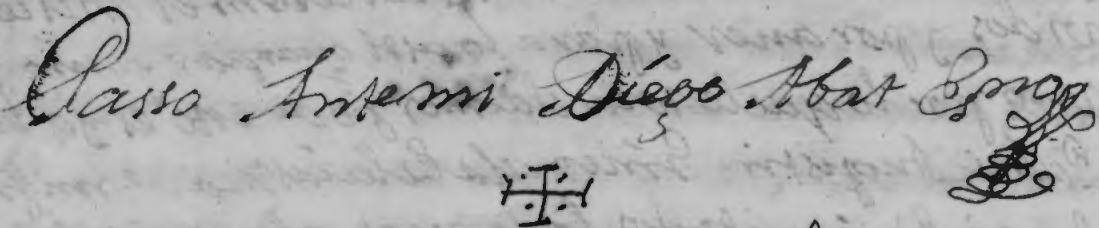 Passo Antemi Diego Abat Essno